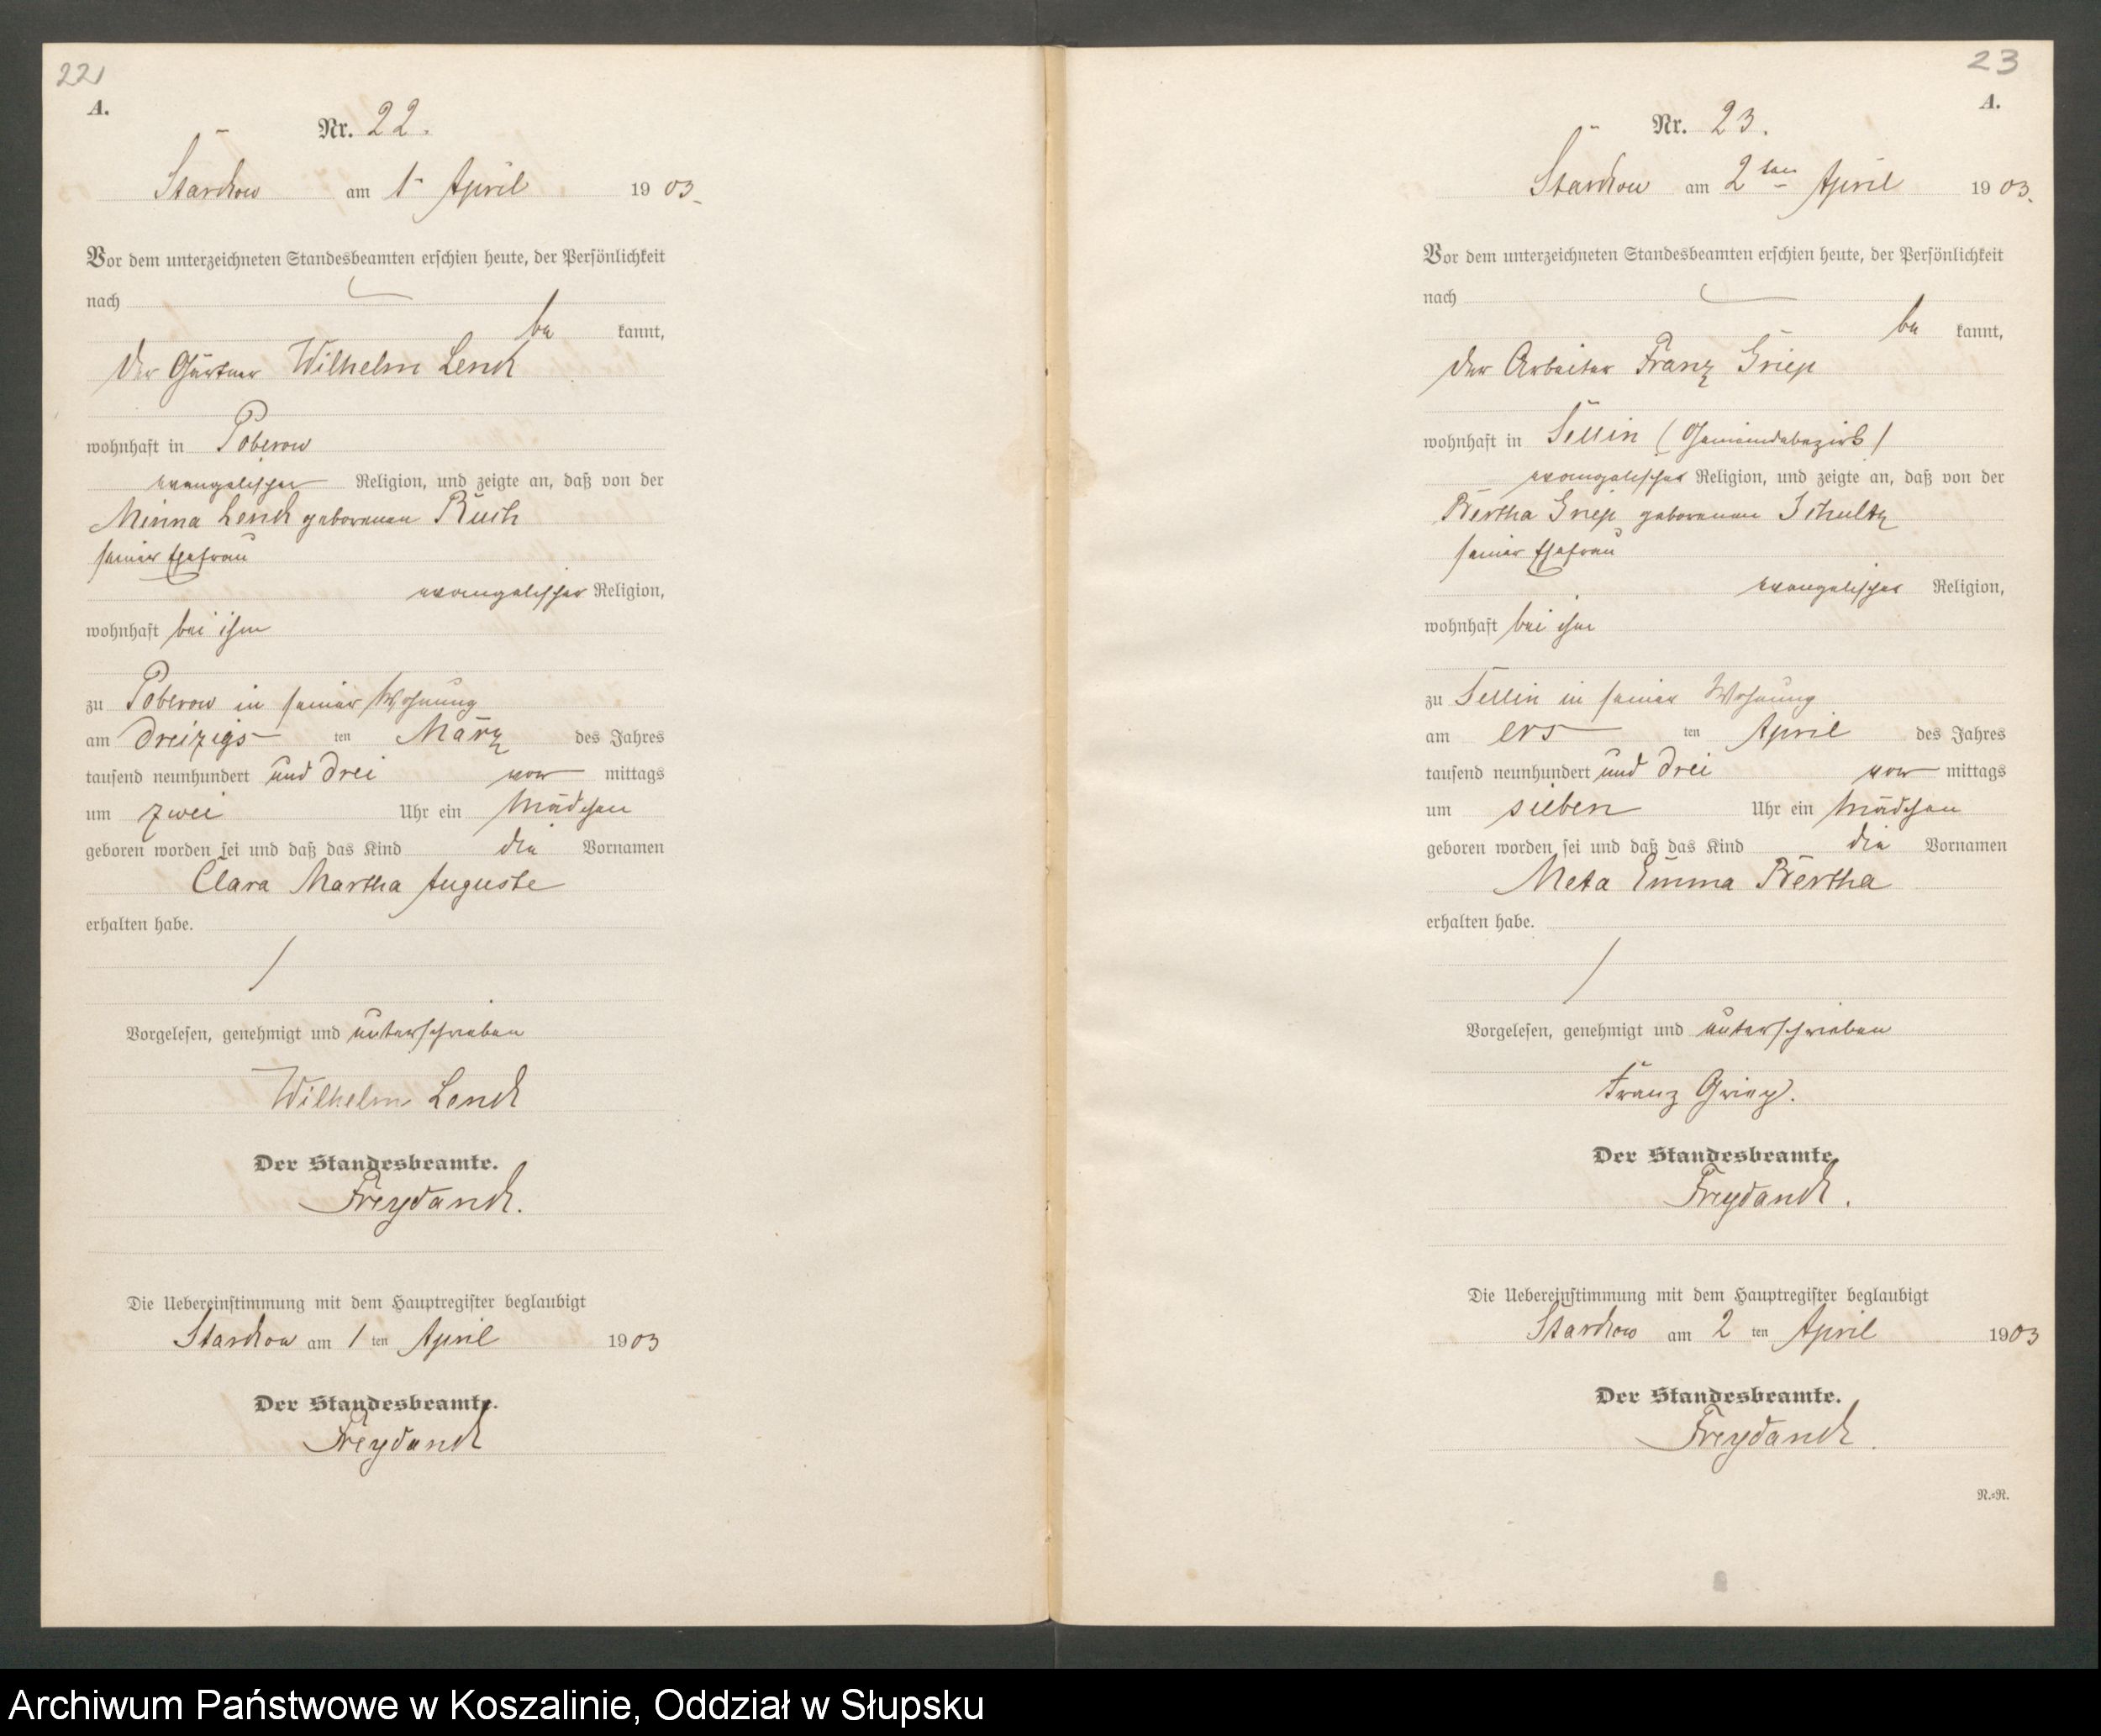 22
A.
Nr. 22.
Starckow am 1ten April 1903.
Vor dem unterzeichneten Standesbeamten erschien heute, der Persönlichkeit
nach
be kannt,
der Gärtner Wilhelm Lenck
wohnhaft in Poberow
evangelischer Religion, und zeigte an, daß von der
Minna Lenck geborenen Ruch
seiner Ehefrau
evangelischer Religion,
wohnhaft bei ihm
zu Poberow in seiner Wohnung
am dreizigs ten März des Jahres
tausend neunhundert und drei vor mittags
um zwei Uhr ein Mädchen
geboren worden sei und daß das Kind die Vornamen
Clara Martha Auguste
erhalten habe.
Vorgelesen, genehmigt und unterschrieben
Wilhelm Lenck
Der Standesbeamte.
Freydanck.
Die Uebereinstimmung mit dem Hauptregister beglaubigt
Starckow am 1 ten April 1903
Der Standesbeamte.
Freydanck
23
A.
Nr. 23.
Starckow am 2ten April 1903.
Vor dem unterzeichneten Standesbeamten erschien heute, der Persönlichkeit
nach
be kannt,
der Arbeiter Franz Griep
wohnhaft in Sellin (Gemeindebezirk)
evangelischer Religion, und zeigte an, daß von der
Bertha Griep geborenen Schultz
seiner Ehefrau
evangelischer Religion,
wohnhaft bei ihm
zu Sellin in seiner Wohnung
am ers ten April des Jahres
tausend neunhundert und drei vor mittags
um sieben Uhr ein Mädchen
geboren worden sei und daß das Kind die Vornamen
Meta Emma Bertha
erhalten habe.
Vorgelesen, genehmigt und unterschrieben
Franz Griep.
Der Standesbeamte.
Freydanck.
Die Uebereinstimmung mit dem Hauptregister beglaubigt
Starckow am 2 ten April 1903
Der Standesbeamte.
Freydanck.
N.=N.
Archiwum Państwowe w Koszalinie, Oddział w Słupsku